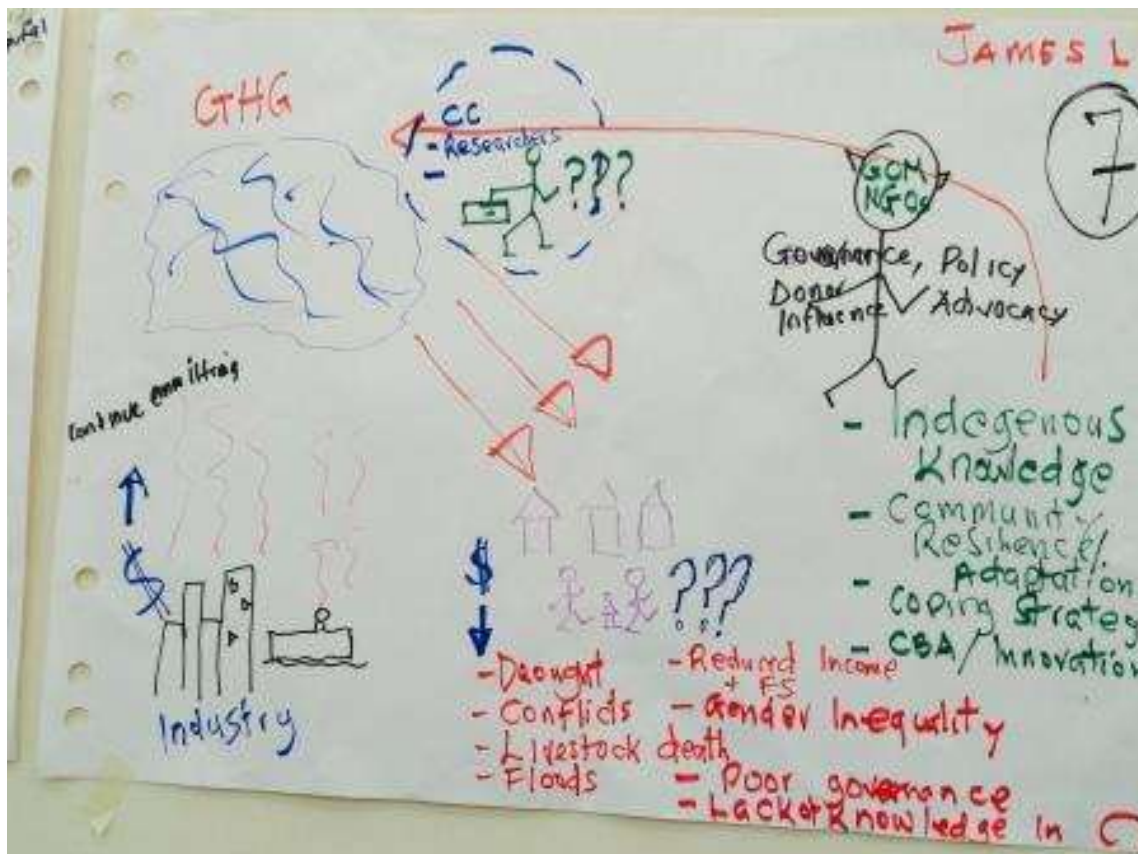 JAMES L
7
GHG
CC
- Researchers
-
???
GOM
NGOs
Governance, Policy
Donor Advocacy
Influence
continue emmitting
$
Industry
$
???
- Indegenous
Knowledge
- Community
Resilience/
Adaptation
- Coping Strateg
- CBA/Innovation
- Drought
- Conflicts
- Livestock death
- Floods
- Reduced Income
+ FS
- Gender Inequality
- Poor governance
- Lack of Knowledge in C